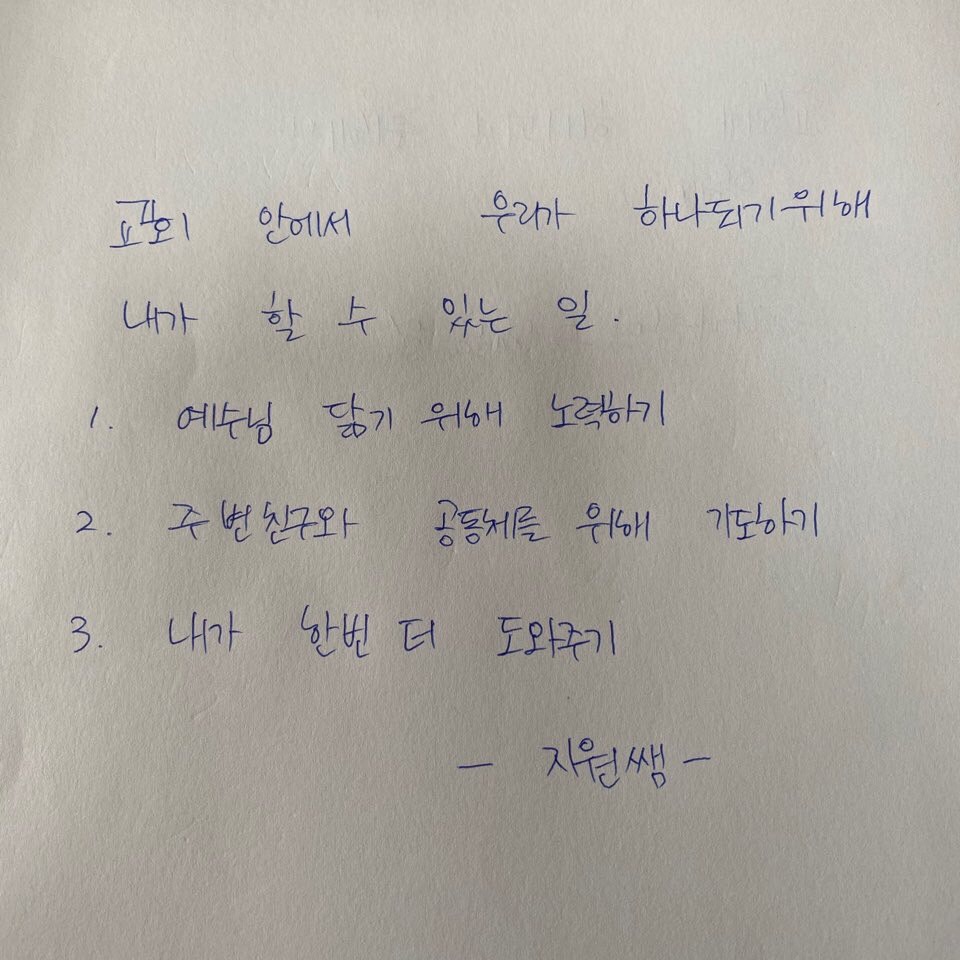 교회 안에서 우리가 하나되기위해
내가 할 수 있는 일.
1. 예수님 닮기 위해 노력하기
2. 주변친구와 공동체를 위해 기도하기
3. 내가 한번 더 도와주기
- 자원쌤 -